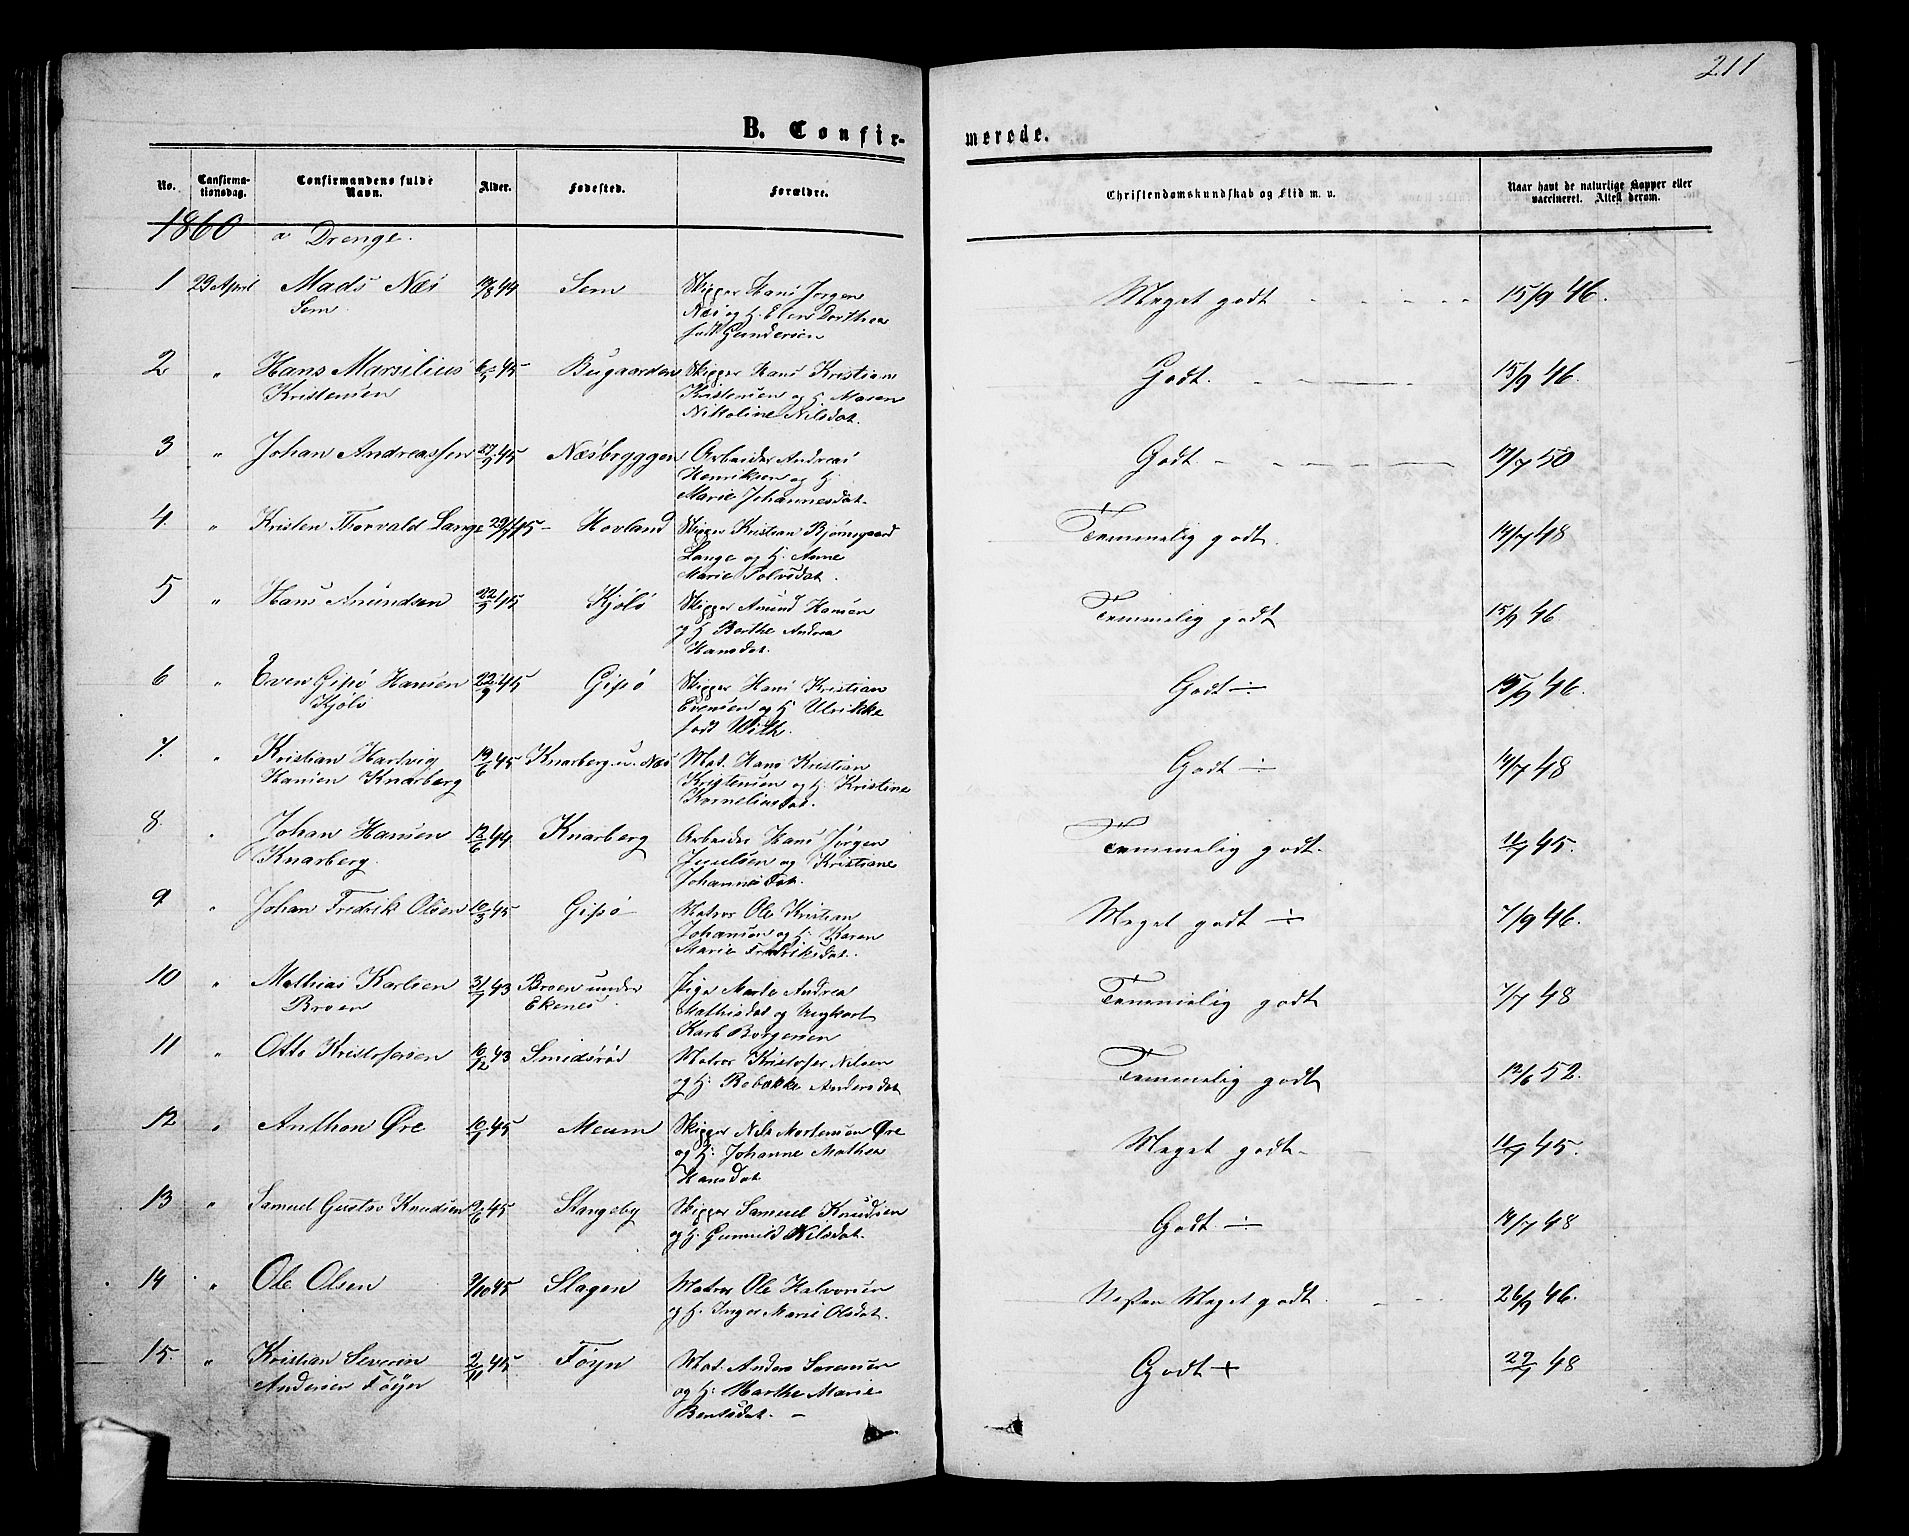 211
B. Confir-
merede.
No.
Confirma-
tionsdag.
Confirmandens fulde
Navn.
Alder.
Fødested.
Forældre.
Christendomskundskab og Flid m. v.
Naar havt de naturlige Kopper eller
vaccineret. Attest derom.
1860
a Drenge.
1 29 April Mads Næs 44 Sem Skipper Hans Jørgen Meget godt 15/9 46.
Sem. Næs og H. Elen Dorthea
født Gundersen
2 " Hans Marsilius 45 Bugaarden Skipper Hans Kristian Godt. 15/9 46.
Kristensen Kristensen og H. Maren
Nikoline Nilsdat.
3 " Johan Andreassen 27/9 45 Næsbryggen Arbeider Andreas Godt. 50
Henriksen og H.
Marie Johannesdat.
4. " Kristen Thorvald Lange 45 Hovland Skipper Kristian Bjørnegaard Temmelig godt. 14/7 48
Lange og H. Anne
Marie Tolvsdat.
5 " Hans Amundsen 45 Kjølø Skipper Amund Hansen Temmelig godt 15/9 46
og H. Berthe Andrea
Hansdat.
6 " Even Gipø Hansen 22/9 45 Gipø Skipper Hans Kristian Godt ÷ 15/9 46.
Kjølø Evensen og H. Ulrikke
født With.
7. " Kristian Hartvig 19/6 45 Knarberg u. Næs Mat. Hans Kristian Godt ÷ 14/7 48
Hansen Knarberg Kristensen og H. Kristine
Korneliusdat.
8. " Johan Hansen 12/6 44 Knarberg Arbeider Hans Jørgen Temmelig godt. 11/7 45.
Knarberg. og Kristiane
Johannesdat.
9 " Johan Fredrik Olsen 10/3 45 Gipø Matros Ole Kristian Meget godt ÷ 7/9 46.
Johansen og H. Karen
Marie Fredriksdat.
10 " Mathias Karlsen 43 Broen under Pige Marte Andrea Temmelig godt 7/7 48
Broen Ekenes. Mathisdat og Ungkarl
Karl Borgersen
11 " Otto Kristofersen 10/12 43 Smidsrød Matros Kristofer Nilsen Temmelig godt 12/6 52.
og H. Rebække Andersdat
12 " Anthon Øre 45 Meum Skipper Nils Mortensen Øre Meget godt 11/7 45.
og H. Johanne Mathea
Hansdat
13 " Samuel Gustav Knudsen 9/6 45 Stangeby Skipper Samuel Knudsen Godt ÷ 14/7 48
og H. Gunnild Nilsdat.
14 " Ole Olsen 9/10 45 Slagen Matros Ole Halvorsen Næsten Meget godt. 26/9 46.
og H. Inger Marie Olsdat.
15. " Kristian Severin 2/11 45 Føyn Mat. Anders Sørensen Godt + 48
Andersen Føyn og H. Marthe Marie
Berntsdat. –